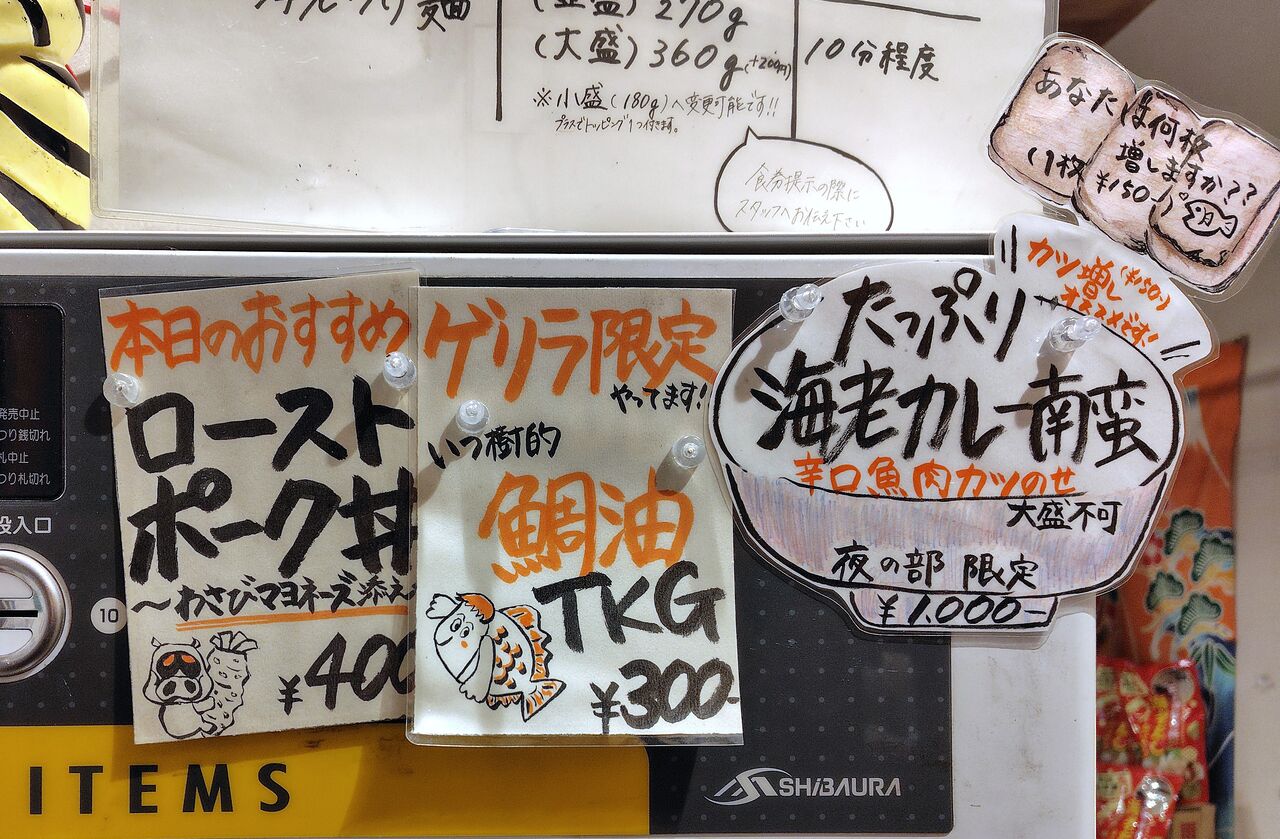 (並盛) 270g
(大盛) 360g (+200円)
10分程度
※小盛(180g)へ変更可能です!!
プラスでトッピング1つ付きます。
食券提示の際に
スタッフへお伝え下さい
あなたは何枚
増しますか??
(1枚 ¥150-)
カツ増し(¥150-)
オススメです!
本日のおすすめ
ロースト
ポーク丼
〜わさびマヨネーズ添え
¥400
ゲリラ限定
やってます!
いつ樹的
鯛油
TKG
¥300-
たっぷり
海老カレー南蛮
辛口魚肉カツのせ
大盛不可
夜の部 限定
¥1,000-
発売中止
つり銭切れ
札中止
つり札切れ
投入口
10
ITEMS
SHiBAURA